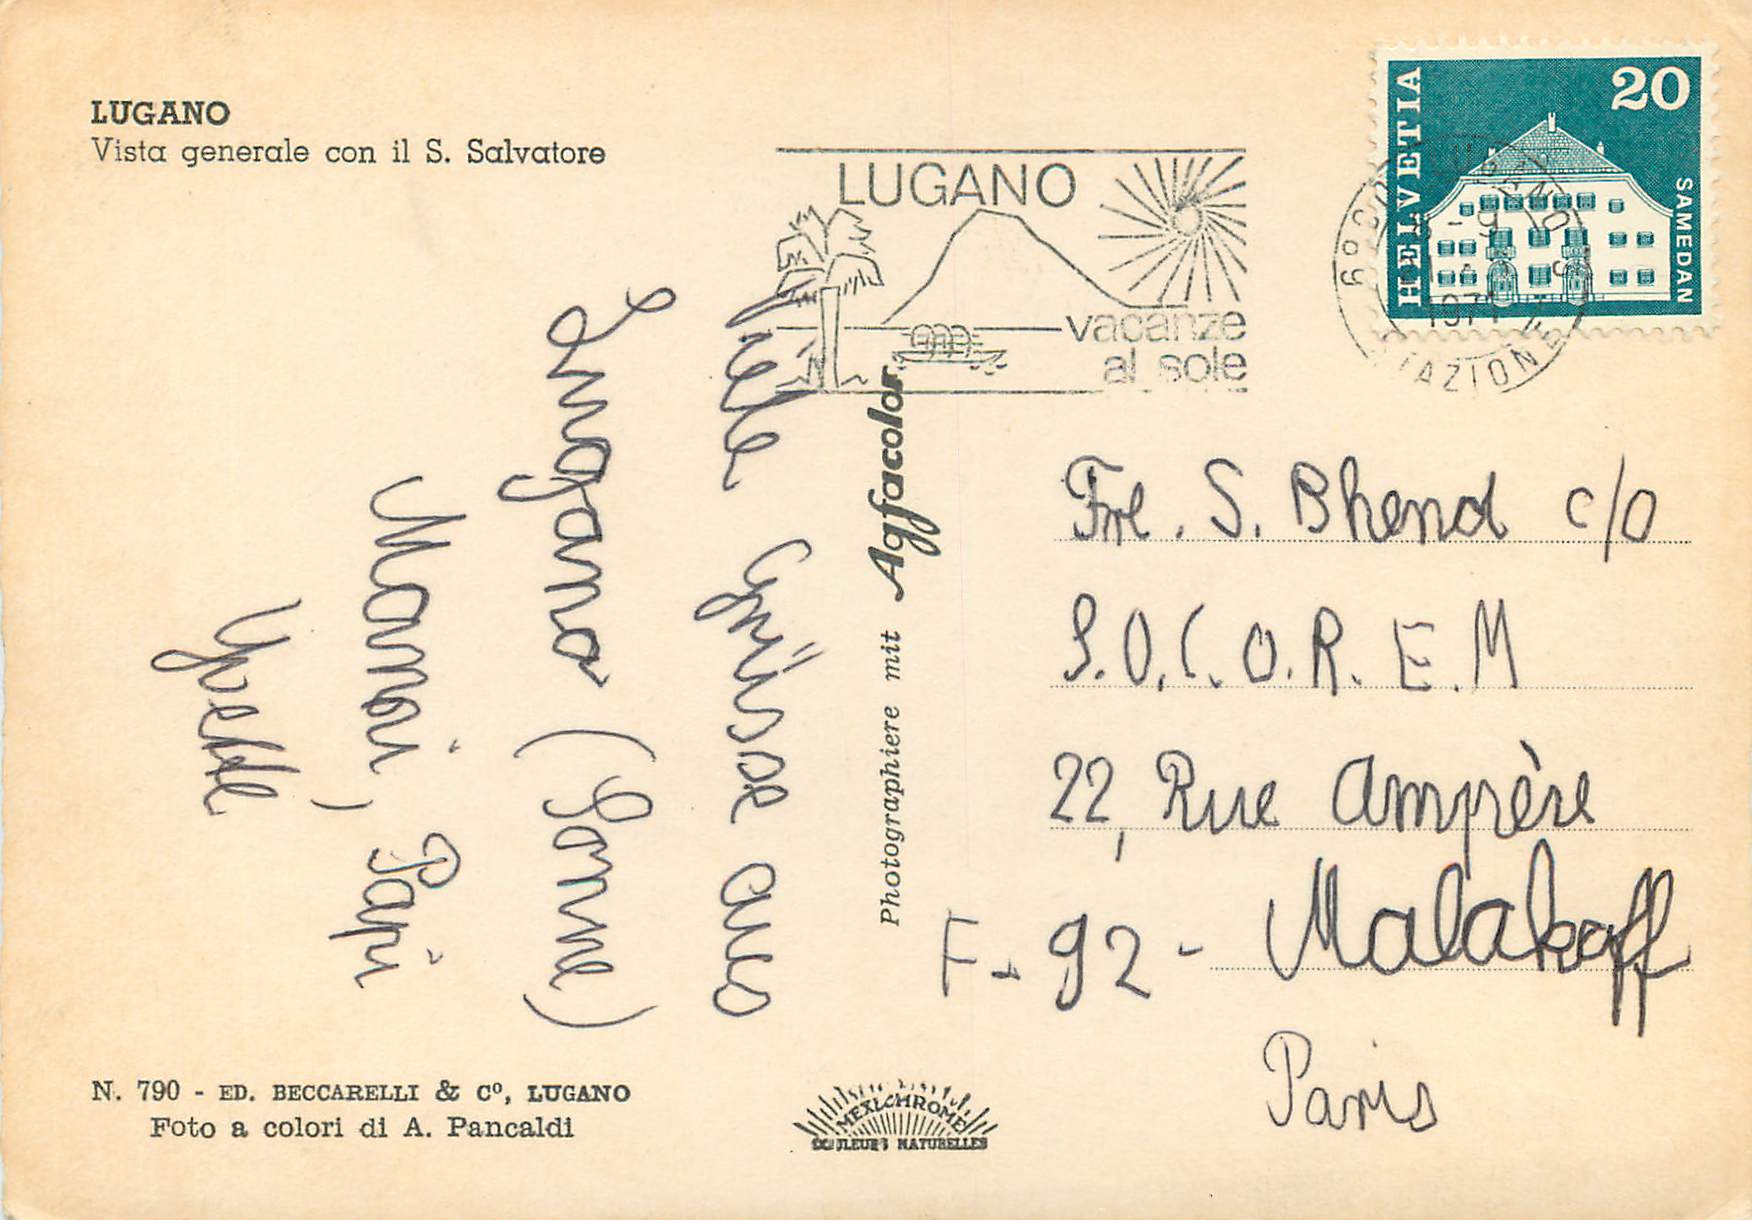 LUGANO
Vista generale con il S. Salvatore
LUGANO
vacanze
al sole
HELVETIA
20
SAMEDAN
1971
Viele Grüsse aus
Lugano (Sonne)
Mami, Papi
Yvette
Photographiere mit Agfacolor
Frl. S. Bhend c/o
S.O.C.O.R.E.M
22, Rue Ampère
F-92- Malakoff
Paris
N. 790 - ED. BECCARELLI & C°, LUGANO
Foto a colori di A. Pancaldi
MEXICHROME
COULEURS NATURELLES